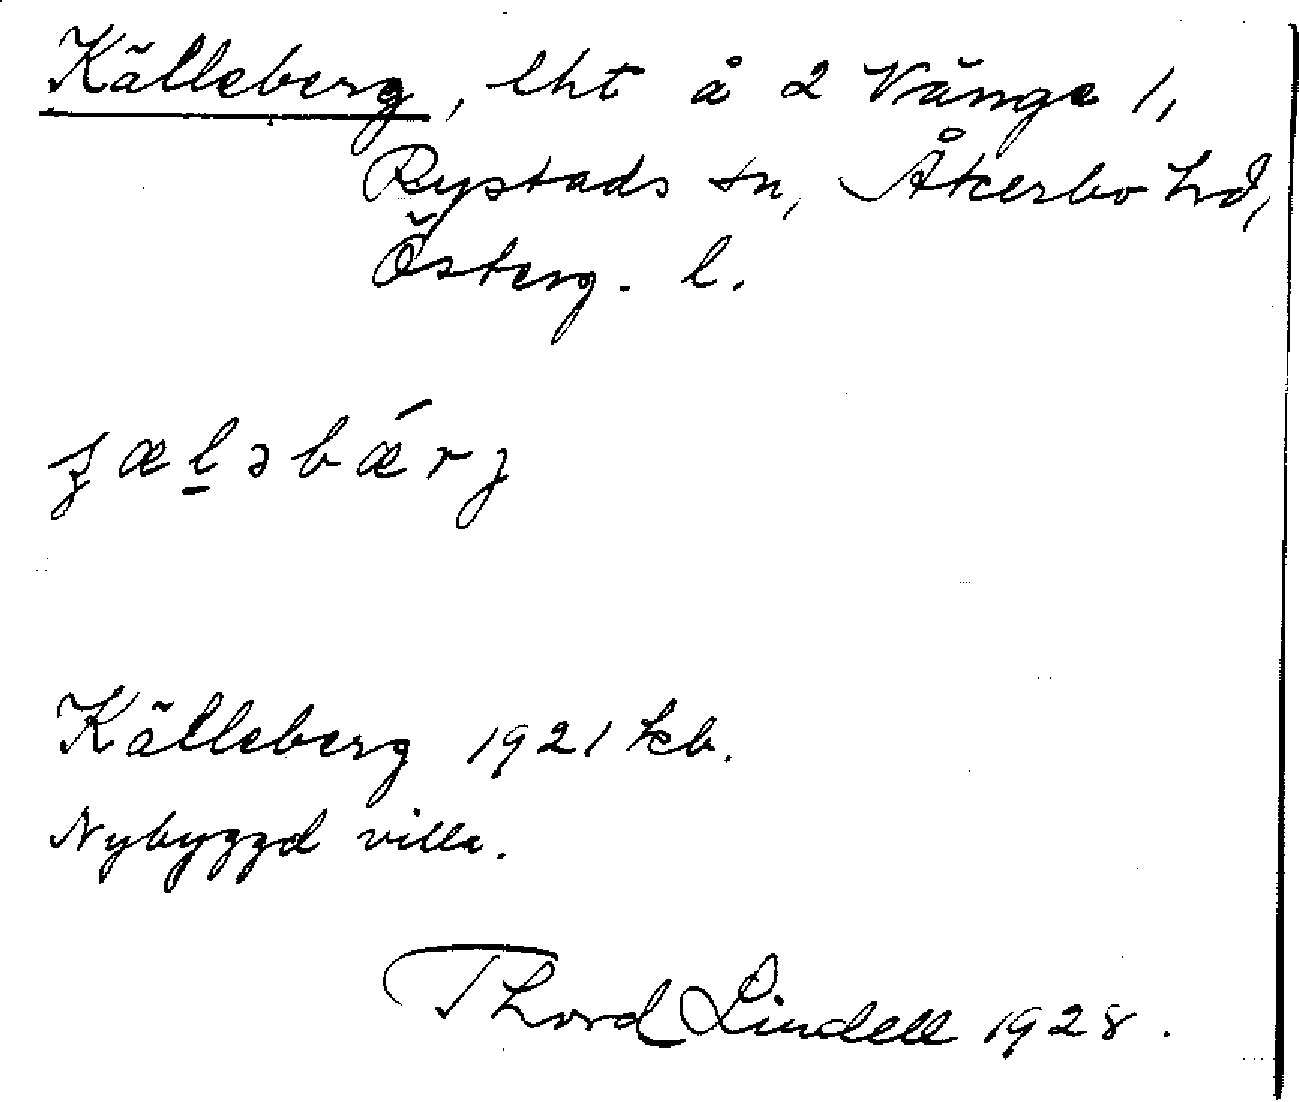 Källeberg, lht å 2 Vänge 1,
Rystads sn, Åkerbo hd,
Österg. l.
ʂæl̠əbǽrj
Källeberg 1921 kb.
Nybyggd villa.
Thord Lindell 1928.